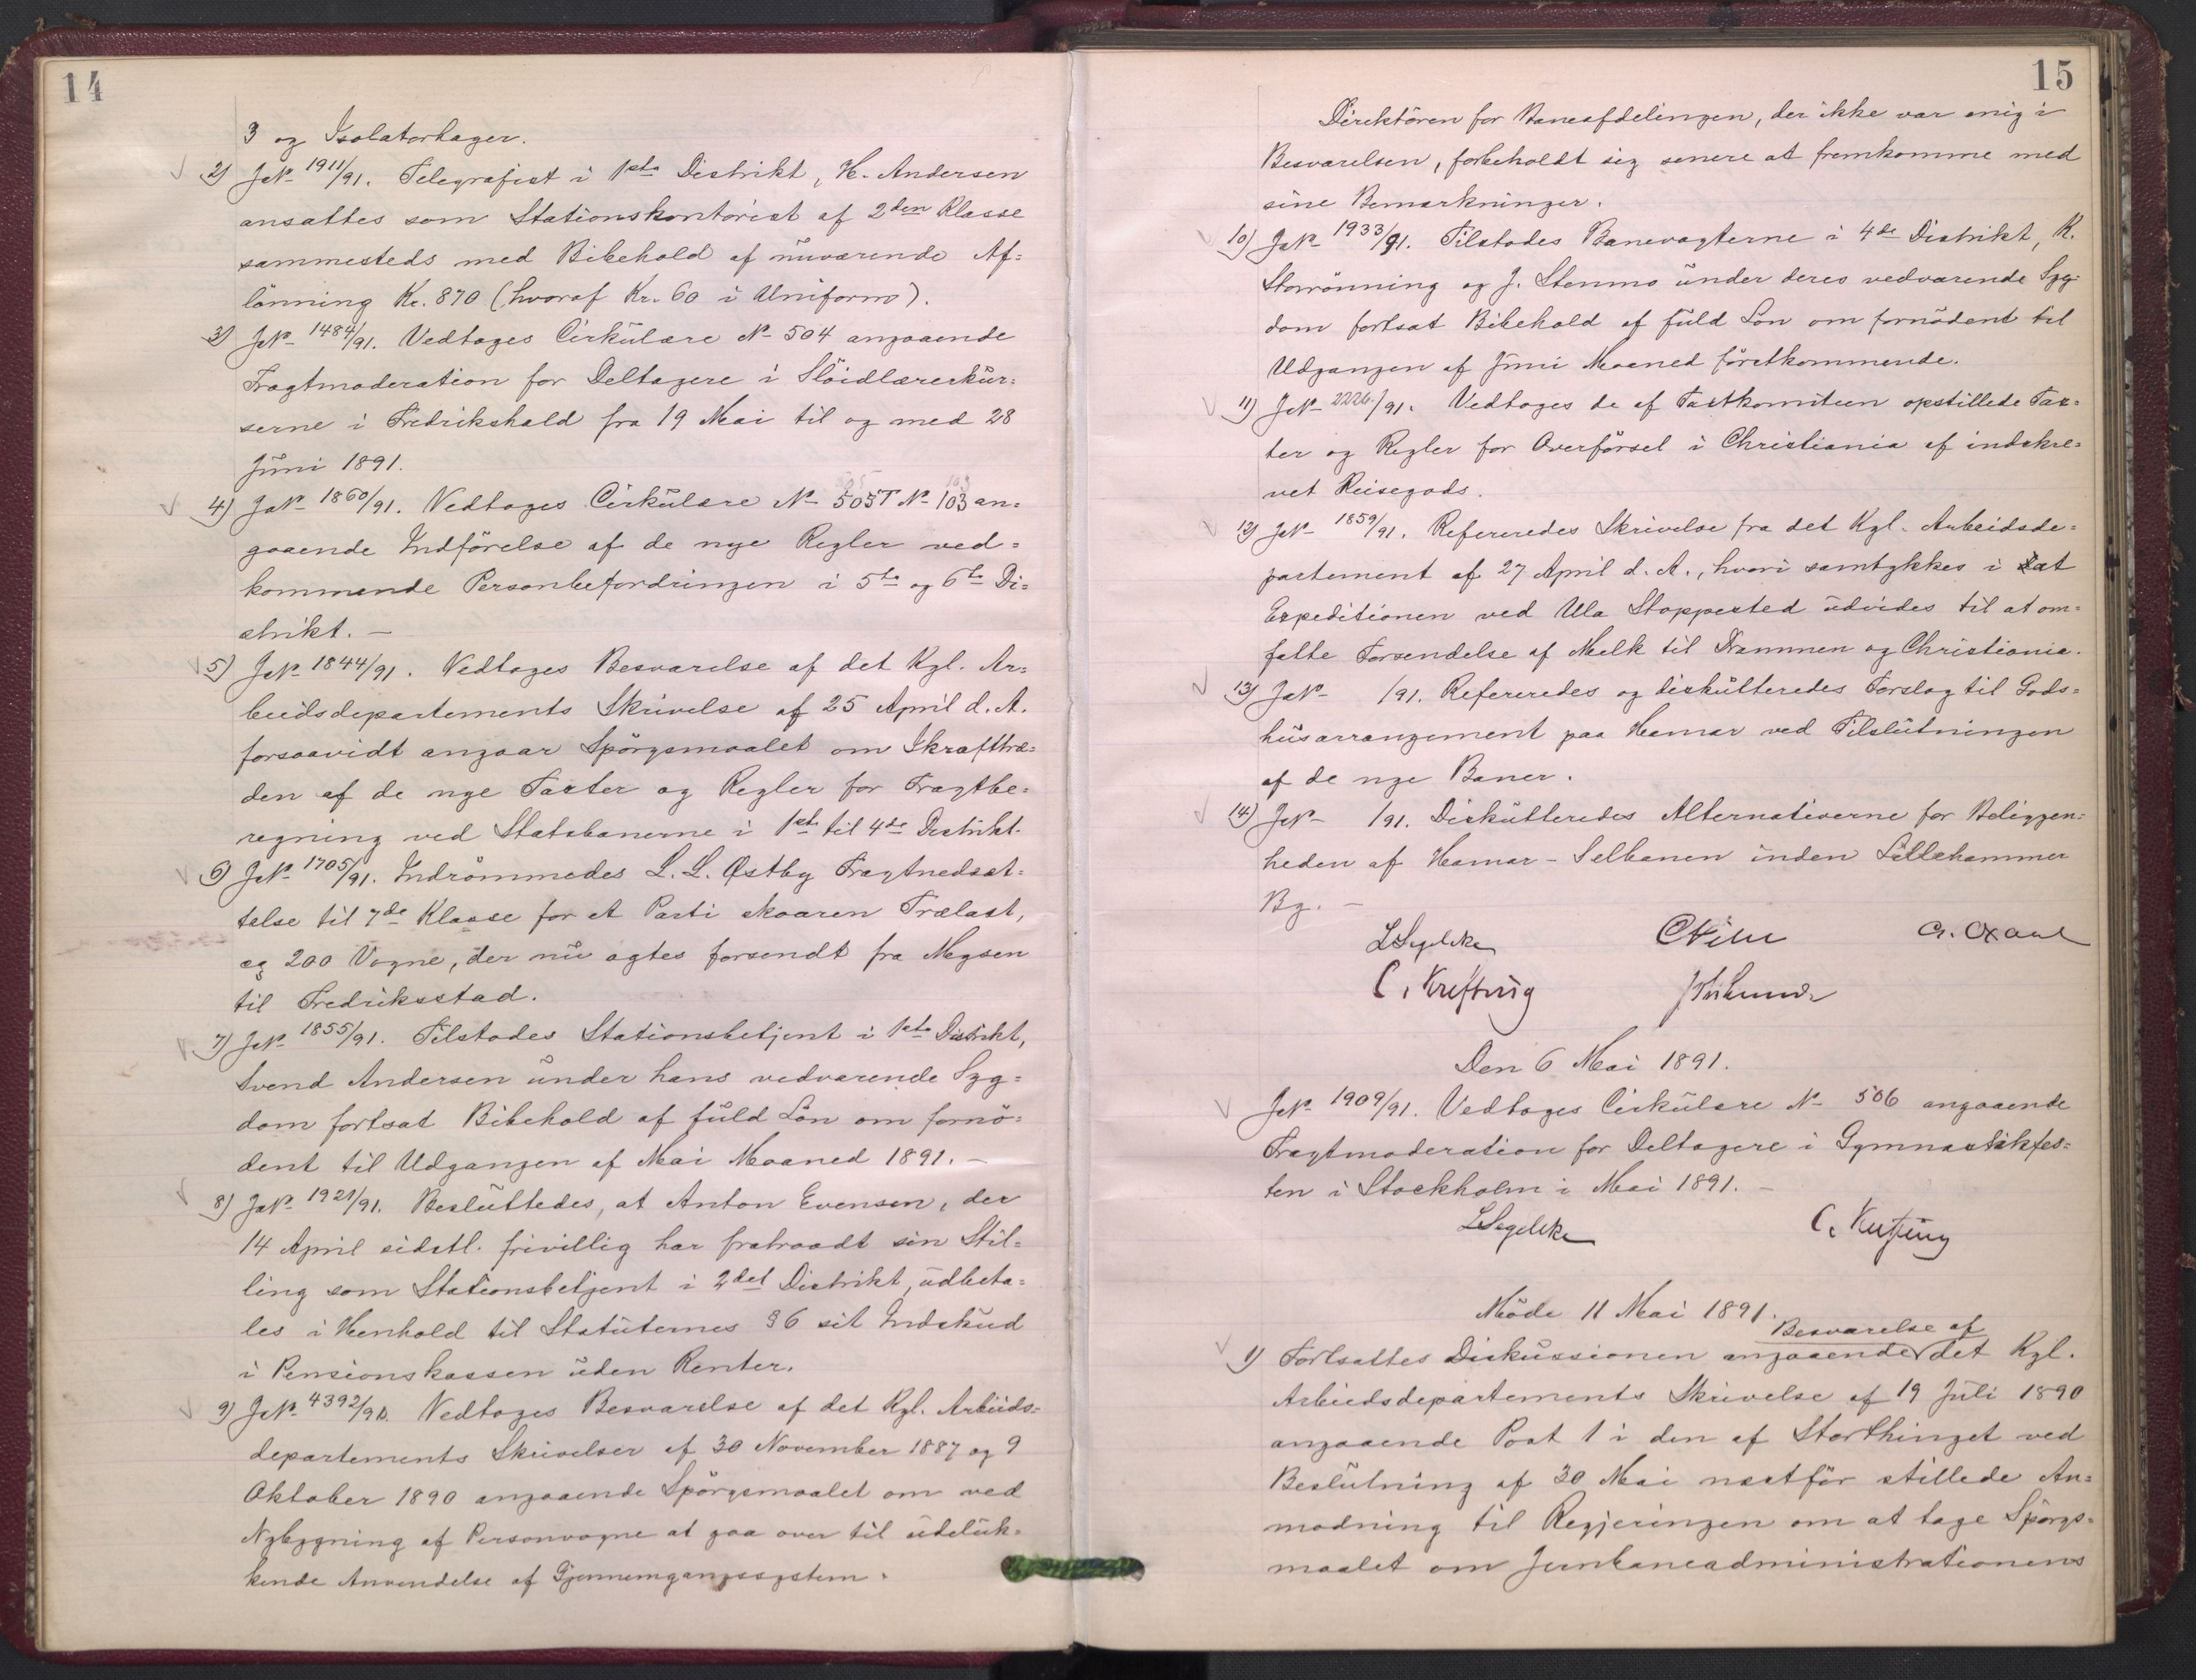 14
3 og Isolatorhager.
2) JN- 1911/91. Telegrafist i 1ste Distrikt, H. Andersen
ansattes som Stationskontorist af 2den Klasse
sammesteds med Bibehold af nuværende Af=
lönning Kr. 870 (hvoraf Kr. 60 i Uniform).
3) JN- 1484/91. Vedtoges Cirkulære N- 504 angaaende
Fragtmoderation for Deltagere i Slöidlærerkur=
serne i Fredrikshald fra 19 Mai til og med 28
Juni 1891.
4) JN- 1860/91. Vedtoges Cirkulære N- 505 T N- 103 an=
gaaende Indförelse af de nye Regler ved=
kommende Personbefordringen i 5te og 6te Di=
strikt. —
5) JN- 1844/91. Vedtoges Besvarelse af det Kgl. Ar=
beidsdepartements Skrivelse af 25 April d. A.
forsaavidt angaar Spörgsmaalet om Ikrafttræ=
den af de nye Taxter og Regler for Fragtbe=
regning ved Statsbanerne i 1ste til 4de Distrikt.
6) JN- 1705/91. Indrömmedes L. L. Østby Fragtnedsæt=
telse til 7de Klasse for et Parti skaaren Trælast,
ca 200 Vogne, der nu agtes forsendt fra Mysen
til Fredriksstad.
7) JN- 1855/91. Tilstodes Stationsbetjent i 1ste Distrikt,
Svend Andersen under hans vedvarende Syg=
dom fortsat Bibehold af fuld Lön om fornö=
dent til Udgangen af Mai Maaned 1891. —
8) JN- 1921/91. Besluttedes, at Anton Evensen, der
14 April sidstl. frivillig har fratraadt sin Stil=
ling som Stationsbetjent i 2det Distrikt, udbeta=
les i Henhold til Statuternes §6 sit Indskud
i Pensionskassen uden Renter.
9) JN- 4392/90. Vedtoges Besvarelse af det Kgl. Arbeids=
departements Skrivelser af 30 November 1887 og 9
Oktober 1890 angaaende Spörgsmaalet om ved
Nybygning af Personvogne at gaa over til udeluk=
kende Anvendelse af Gjennemgangssystem.
15
Direktören for Baneafdelingen, der ikke var enig i
Besvarelsen, forbeholdt sig senere at fremkomme med
sine Bemærkninger.
10) JN- 1933/91. Tilstodes Banevogterne i 4de Distrikt, K.
Storrönning og J. Stenmo under deres vedvarende Syg=
dom fortsat Bibehold af fuld Lön om fornödent til
Udgangen af Juni Maaned förstkommende.
11) JN- 2226/91. Vedtoges de af Taxtkomiteen opstillede Tax=
ter og Regler for Overförsel i Christiania af indskre=
vet Reisegods.
12) JN- 1859/91. Refereredes Skrivelse fra det Kgl. Arbeidsde=
partement af 27 April d. A., hvori samtykkes i at
Expeditionen ved Ula Stoppested udvides til at om=
fatte Forsendelse af Melk til Drammen og Christiania.
13) JN- /91. Refereredes og diskutteredes Forslag til Gods=
husarrangement paa Hamar ved Tilslutningen
af de nye Baner.
14) JN- /91. Diskutteredes Alternativerne for Beliggen=
heden af Hamar - Selbanen inden Lillehammer
By. —
LSegelcke CPihl
C. Krefting
Den 6 Mai 1891.
JN- 1909/91. Vedtoges Cirkulære N- 506 angaaende
Fragtmoderation for Deltagere i Gymnastikfes=
ten i Stockholm i Mai 1891. —
LSegelcke C. Krefting
Möde 11 Mai 1891.
Besvarelse af
1) Fortsattes Diskussionen angaaende det Kgl.
Arbeidsdepartements Skrivelse af 19 Juli 1890
angaaende Post 1 i den af Storthinget ved
Beslutning af 30 Mai næstför stillede An=
modning til Regjeringen om at tage Spörgs=
maalet om Jernbaneadministrationens